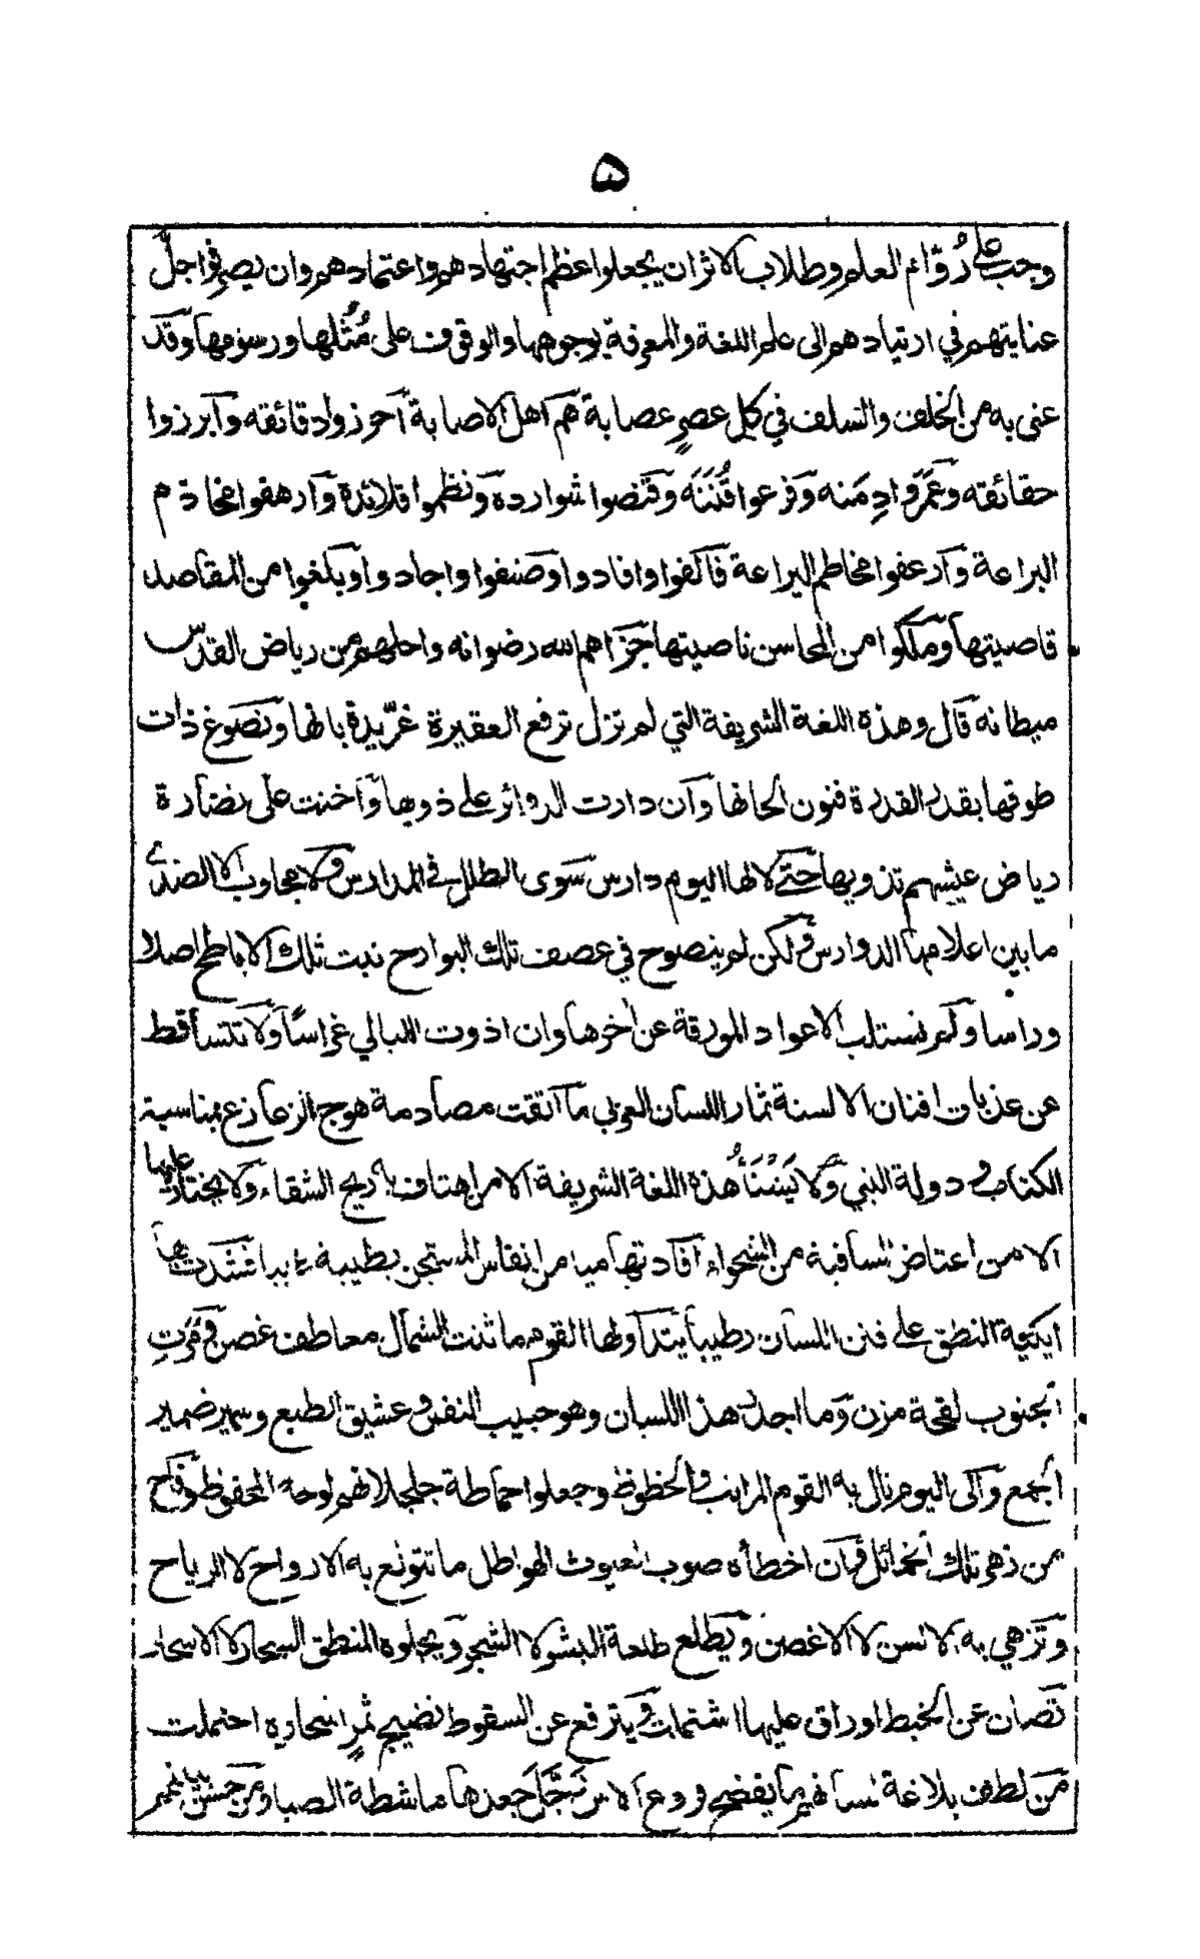 ۵
وجب على رُوّام العلم وطلاب الاثر ان يجعلوا عظم اجتهادهم واعتمادهم وان يصرفوا جلّ
عنايتهم في ارتيادهم الى علم اللغة والمعرفة بوجوهها والوقوف على مُثُلها ورسومها وَقَد
عنى به من الخلف والسلف في كل عصرٍ عصابة هُم اَهل الاصابة اَحرزوا دقائقه وَاَبرزوا
حقائقه وعَمَرُوا دِمَنه وَفَرعوا قُنَنَه وَقنصوا شوارده وَنظموا قلائده وَارهفوا مخاذم
البراعة وَاَرعفوا مخاطم اليراعة فاَلّفوا وافادوا وصَنفوا واجادوا وبلَغوا من المقاصد
قاصيتها وَملكوا من المحاسن ناصيتها جَزاهم الله رضوانه واحلهم من رياض القدس
ميطانه قال وهذه اللغة الشريفة التي لم تزل ترفع العقيرة غرّيدة بانها وتصوغ ذات
طوقها بقدر القدرة فنون الحانها وَان دارت الدوائر على ذويها وَاَخنت على نضارة
رياض عيشهم تذويها حَتى لا لها اليوم دارس سوى الطلل في المدارس ولا مجاوب الا الصدى
ما بين اعلامها الدوارس وَلكن لم يتصوح في عصف تلك البوارح نبت تلك الاباطح اصلا
وراسا وَلم تستلب الاعواد المورقة عن اٰخرها وان اذوت الليالي غراسًا وَلا تتساَقط
عن عذبات افنان الالسنة ثمار اللسان العربي ما اتقت مصادمة هوج الزعازع بمناسبة
الكتاب و دولة النبي وَلا يَشْنَأُ هذه اللغة الشريفة الا من اهتاف به ريح الشقاء وَلا يختار عليها
الا من اعتاض السافية من الشحواء اَفادتها ميامن انفاس المستجن بطيبة طيبا فشدت بها
ايكية النطق على فنن اللسان رطيبا يتداَولها القوم ما ثنت الشمال معاطف غصن وَمَرَتِ
الجنوب لقحة مزن وَما اجدر هذا اللسان وهو حبيب النفس وعشيق الطبع وسمير ضمير
الجمع وَالى اليوم نال به القوم المراتب والحظوظ وجعلوا حماطة جلجلانهم لوحه المحفوظ وَفاح
من زهر تلك الخمائل وَان اخطأه صوب الغيوث الهواطل ما تتولع به الارواح لا الرياح
وَتزهى به الالسن لا الاغصن وَيطلع طلعة البشر لا الشجر وَيجلوه المنطق السحار لا الاسحار
تصان عَن الخبط اوراق عليها اشتملت وَيترفع عن السقوط نضيج ثمرٍ اشجاره احتملت
مَن لطف بلاغة لسانهم ما يفضح فروع الاٰس رَجَّلَ جعدها ماشطة الصبا وَمن حسن بيانهم